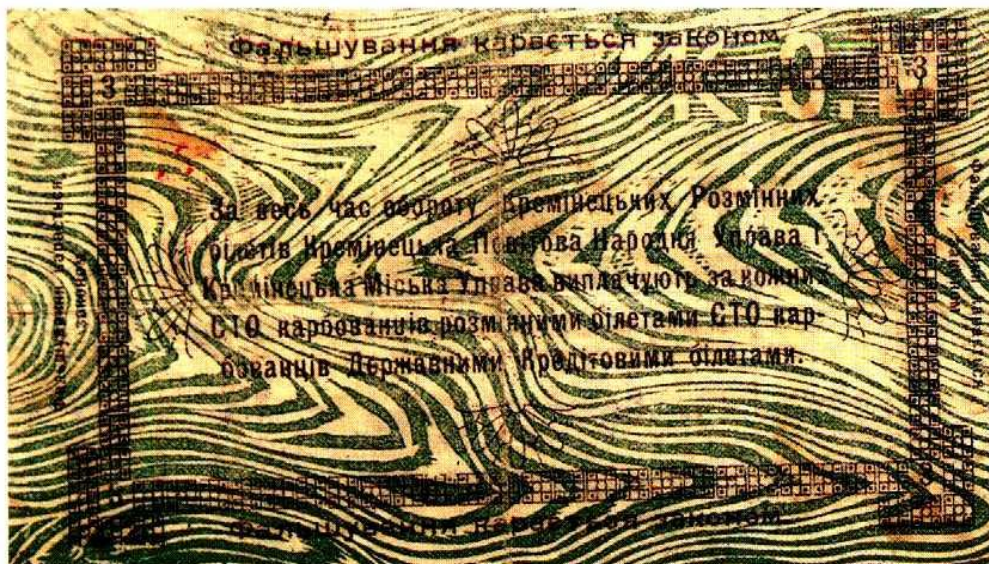 Фальшування карається законом
К.О.
3 3
За весь час обороту Кремінецьких Розмінних
білетів Кремінецька Повітова Народня Управа і
Кремінецька Міська Управа виплачують за кожних
СТО карбованців розмінними білетами СТО кар-
бованців Державними Кредітовими білетами.
Фальшування карається законом
Фальшування карається законом
3
Фальшування карається законом